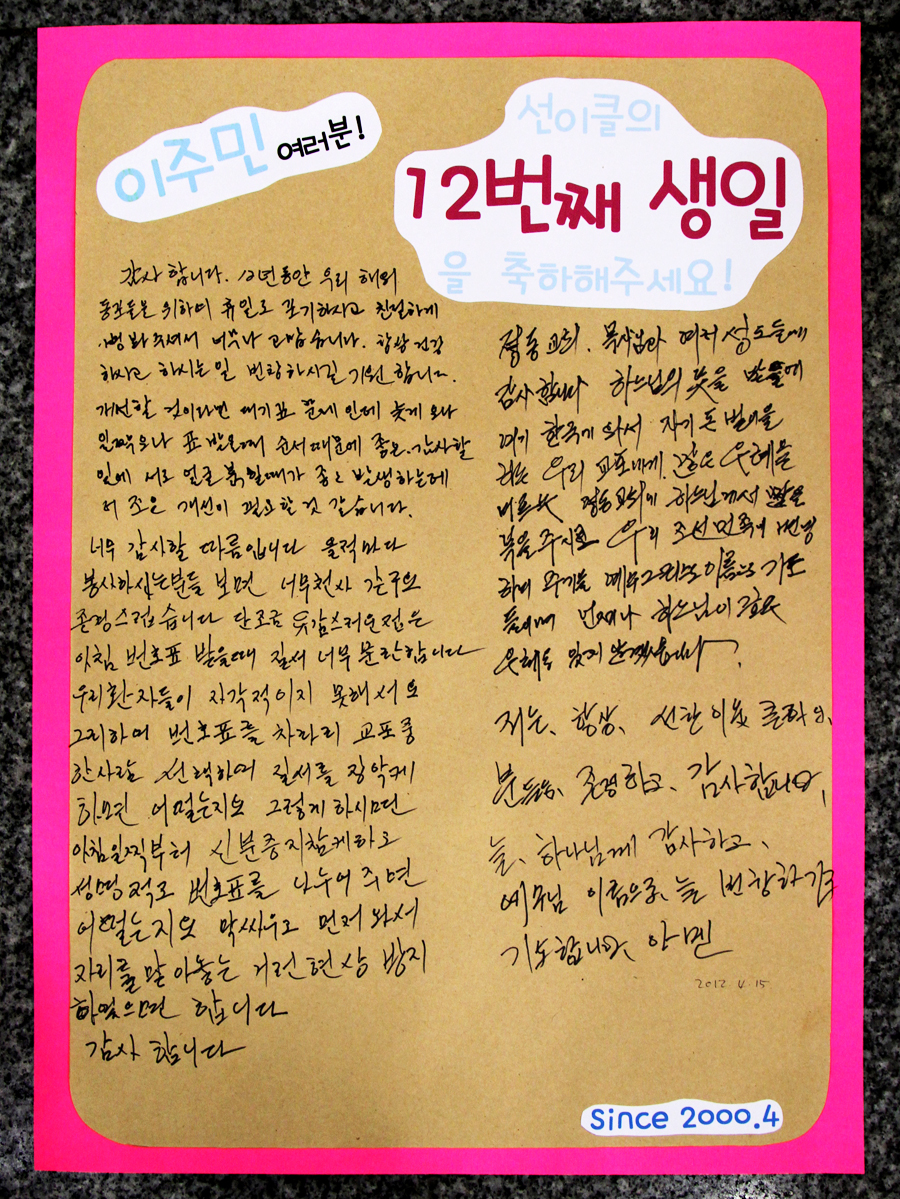 이주민 여러분!
선이클의
12번째 생일
을 축하해주세요!
감사 합니다. 12년동안 우리 해외
동포들을 위하여 휴일로 포기하시고 친절하게
병 봐주셔서 너무나 고맙습니다. 항상 건강
하시고 하시는일 번창하시길 기원 합니다.
개선할 것이라면 대기표 문제 인데 늦게 오나
일찍오나 표 받을때 순서때문에 좋은, 감사할
일에 서로 얼굴 붉힐때가 종종 발생하는데
더 좋은 개선이 필요할것 같습니다.
너무 감사할 따름입니다 올적마다
봉사하십는분들 보면 너무천사 같구요
존경스럽습니다 단조금 유감스러운점은
아침 번호표 받을때 질서 너무 문란합니다
우리환자들이 자각적이지 못해서요
그리하여 번호표를 차라리 교포중
한사람 선택하여 질서를 장악케
하오면 어떨는지요 그렇게 하시면
아침일찍부터 신분증지참케하고
성명적고 번호표를 나누어 주면
어떨는지요 막싸우고 먼저 와서
자리를 맡아놓는 이런현상 방지
하였으면 합니다
감사 합니다
정동 교회. 목사님과 여러 성도들께
감사합니다 하느님의 뜻을 받들어
여기 한국에 와서 자기 돈벌이을
하는 우리 교포에게 같은 은혜을
정동 교회에 하느님께서 많은
복을 주시고 우리 조선민족이 번영
하며 예수그리스도 이름으로 기도
언제나 하느님이
은혜를 잊지 않겠습니다.
저는, 항상, 선한 이웃 클리닉,
분들을, 존경하고, 감사합니다,
늘, 하나님께 감사하고,
예수님 이름으로, 늘 번창하길
기도합니다, 아멘
2012 4.15
Since 2000.4